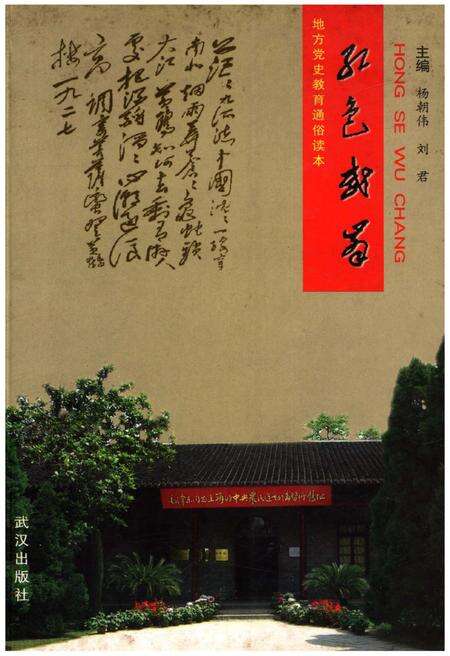 茫茫九派流中國沉沉一线穿
南北烟雨莽苍苍龟蛇锁
大江黄鹤知何去剩有游人
處把酒酹滔滔心潮逐浪
高 调寄菩萨蛮 登黄鹤
楼 一九二七
地方党史教育通俗读本
红色武昌
HONG SE WU CHANG
主编 杨朝伟 刘君
毛泽东同志主办的中央农民运动讲习所旧址
武汉出版社